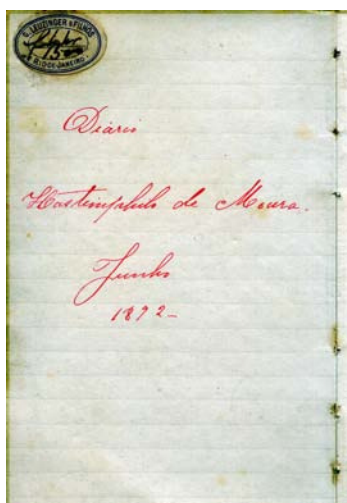 G. LEUZINGER & FILHOS
RIO DE JANEIRO
Diario
Hastimphilo de Moura.
Junho
1892-